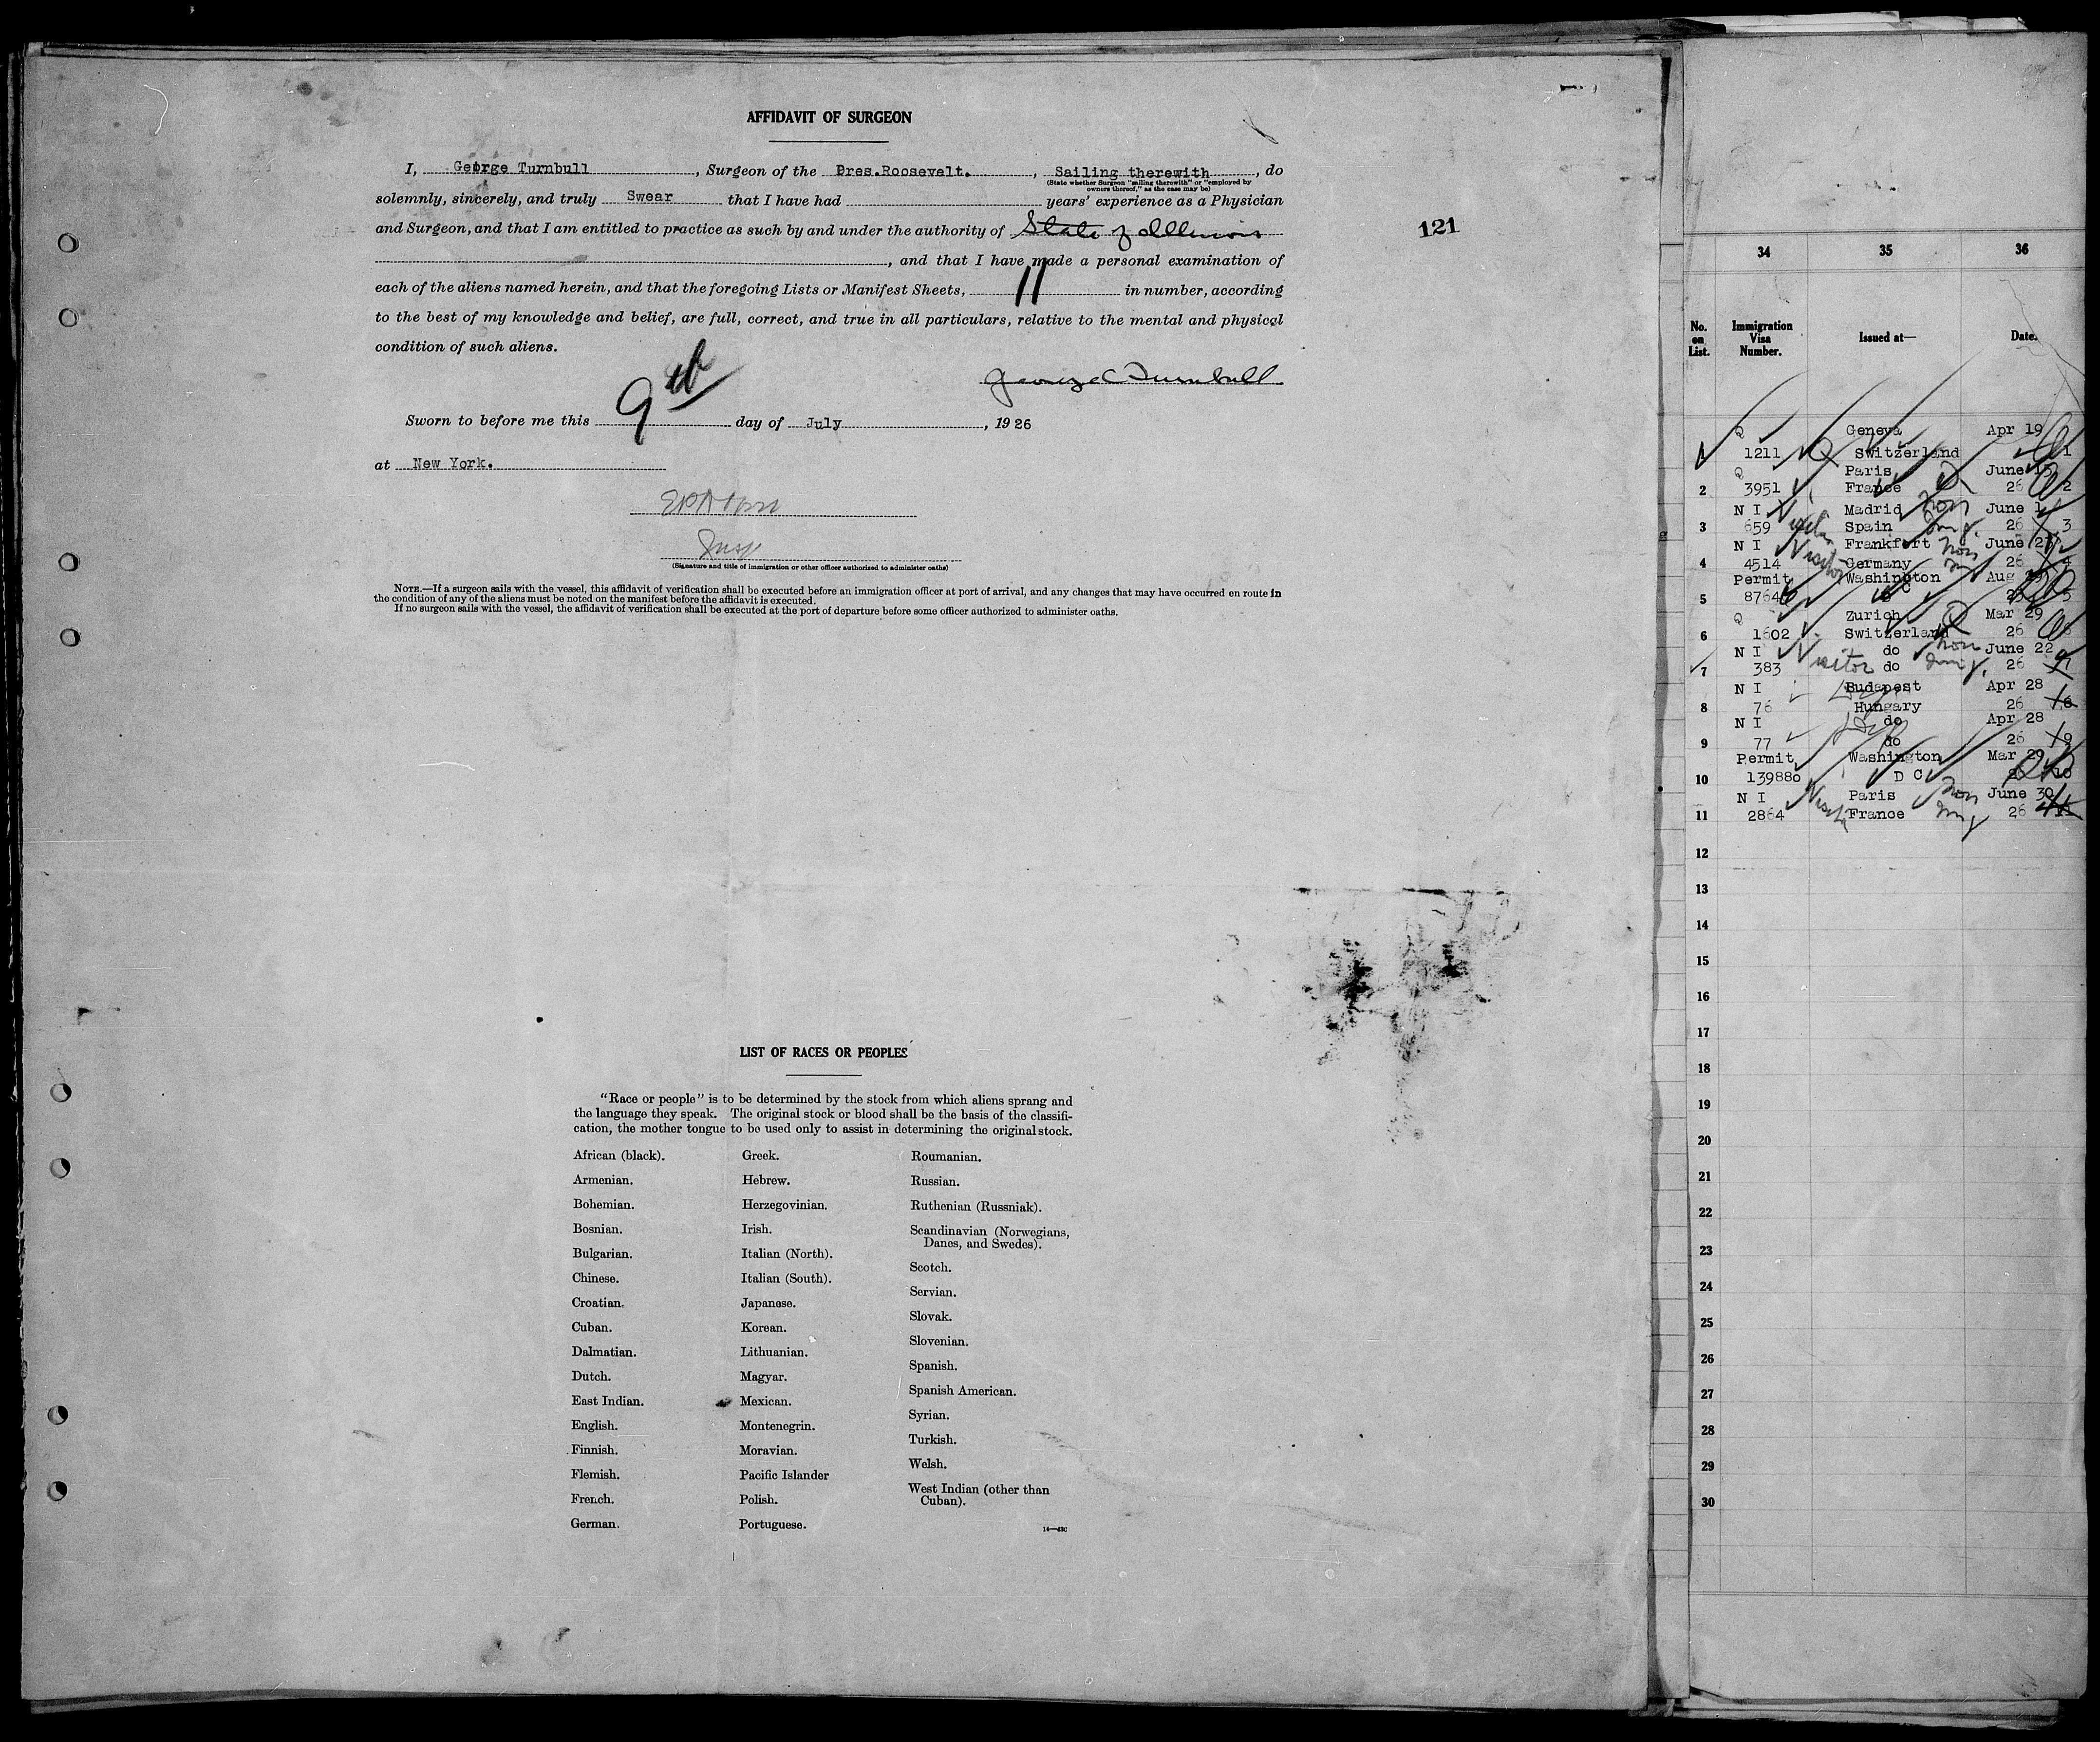 AFFIDAVIT OF SURGEON
I, George Turnbull, Surgeon of the Pres.Roosevelt., Sailing therewith, do
(State whether Surgeon "sailing therewith" or "employed by
owners thereof," as the case may be)
solemnly, sincerely, and truly Swear that I have had years' experience as a Physician
and Surgeon, and that I am entitled to practice as such by and under the authority of State of Illinois
121
, and that I have made a personal examination of
each of the aliens named herein, and that the foregoing Lists or Manifest Sheets, 11 in number, according
to the best of my knowledge and belief, are full, correct, and true in all particulars, relative to the mental and physical
condition of such aliens.
George C Turnbull
Sworn to before me this 9th day of July, 1926
at New York.
Insp
(Signature and title of immigration or other officer authorized to administer oaths)
NOTE.—If a surgeon sails with the vessel, this affidavit of verification shall be executed before an immigration officer at port of arrival, and any changes that may have occurred en route in
the condition of any of the aliens must be noted on the manifest before the affidavit is executed.
If no surgeon sails with the vessel, the affidavit of verification shall be executed at the port of departure before some officer authorized to administer oaths.
LIST OF RACES OR PEOPLES
"Race or people" is to be determined by the stock from which aliens sprang and
the language they speak. The original stock or blood shall be the basis of the classifi-
cation, the mother tongue to be used only to assist in determining the original stock.
African (black).
Armenian.
Bohemian.
Bosnian.
Bulgarian.
Chinese.
Croatian.
Cuban.
Dalmatian.
Dutch.
East Indian.
English.
Finnish.
Flemish.
French.
German.
Greek.
Hebrew.
Herzegovinian.
Irish.
Italian (North).
Italian (South).
Japanese.
Korean.
Lithuanian.
Magyar.
Mexican.
Montenegrin.
Moravian.
Pacific Islander
Polish.
Portuguese.
Roumanian.
Russian.
Ruthenian (Russniak).
Scandinavian (Norwegians,
Danes, and Swedes).
Scotch.
Servian.
Slovak.
Slovenian.
Spanish.
Spanish American.
Syrian.
Turkish.
Welsh.
West Indian (other than
Cuban).
34 35 36
No. on List. Immigration Visa Number. Issued at— Date.
Q Geneva Apr 19
1 1211 Q Switzerland 1
Q Paris June 15
2 3951 France 26 2
N I Madrid Non June 1
3 659 Spain Img 26 3
N I Visitor Frankfort Non June 23
4 4514 Germany 26 4
Permit Washington Aug
5 87646 C 5
Q Zurich Mar 29
6 1602 Switzerland 26
N I do Non June 22
7 383 Visitor do Img. 26 7
N I Budapest Apr 28
8 76 Hungary 26 8
N I do Apr 28
9 77 do 26 9
Permit Washington Mar 29
10 139880 D C 10
N I Paris Non June 30
11 2864 France Img 26 11
12
13
14
15
16
17
18
19
20
21
22
23
24
25
26
27
28
29
30